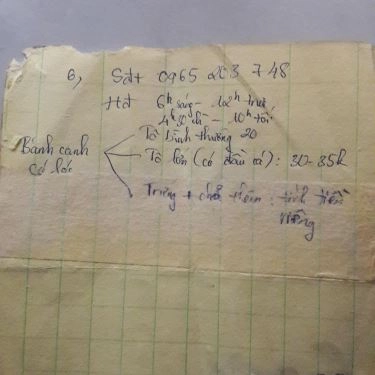 6, Sđt 0965 203 748
Hđ 6h sáng - 12h trưa
4h30 ch - 10h tối
Bánh canh cá lóc
Tô bình thường 20
Tô lớn (có đầu cá): 30-35k
Trứng + chả thêm: tính tiền riêng